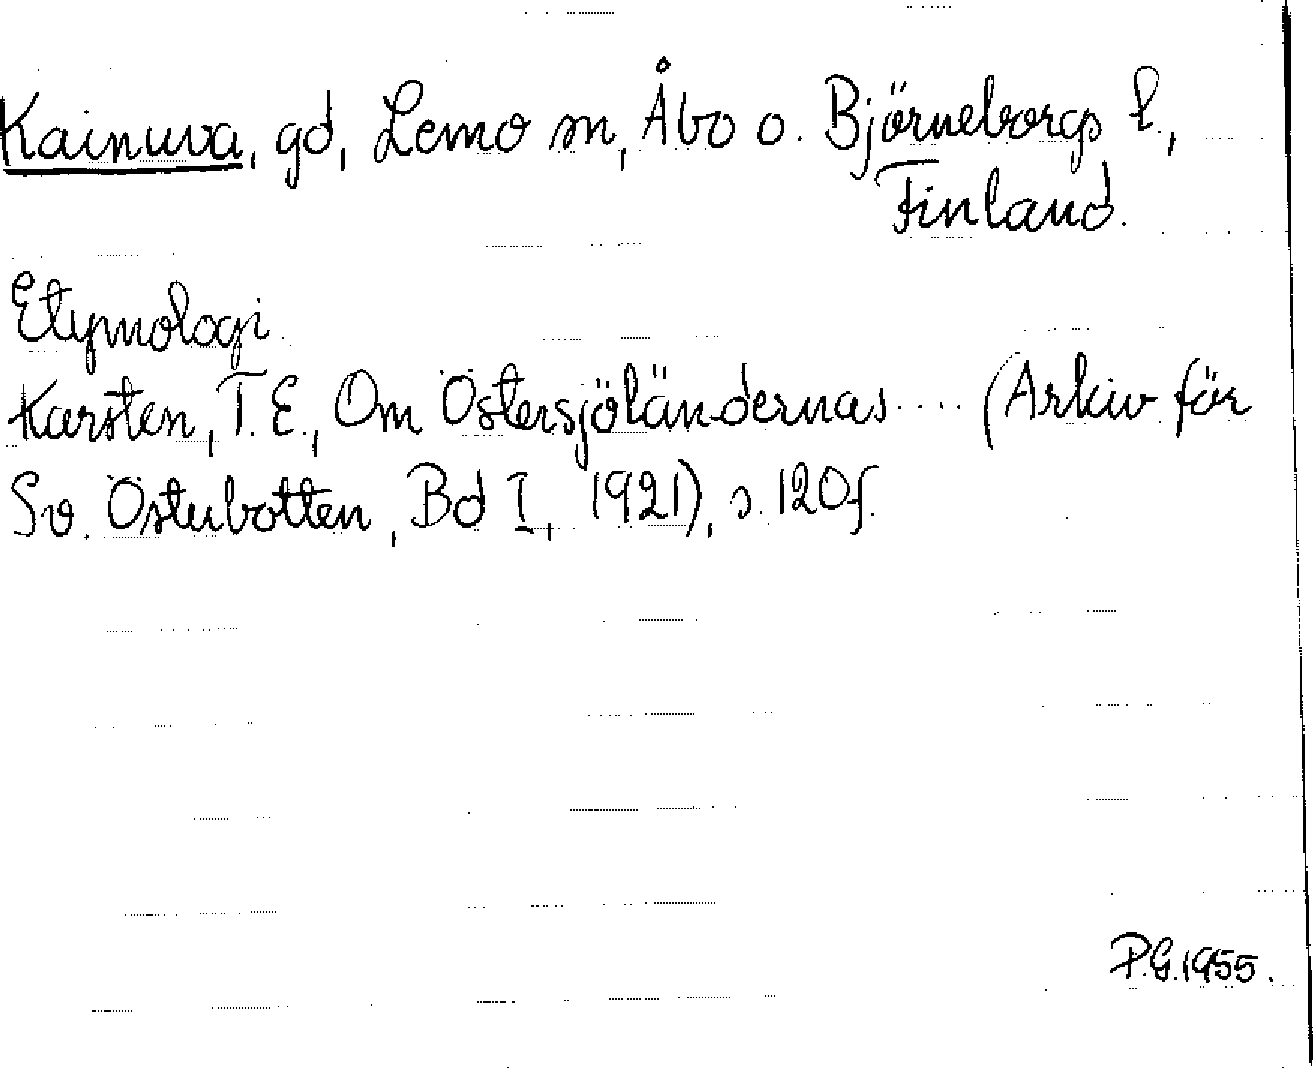 Kainuva, gd, Lemo sn, Åbo o. Björneborgs l.,
Finland.
Etymologi.
Karsten, T.E., Om Östersjöländernas .... (Arkiv för
Sv. Österbotten, Bd I, 1921), s. 120f.
P.G. 1955.